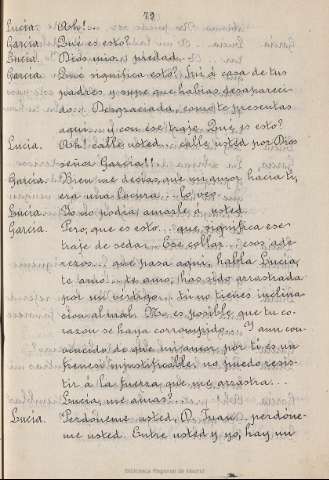 29
Lucia. Ah!...
Garcia. Qué es esto?
Lucia. Dios mio, piedad.
Garcia. Qué significa esto? Fui á casa de tus
padres y supe que habias desapareci-
do... Desgraciada, como te presentas
aqui... y con ese traje. Qué es esto?
Lucia. Ah! calle usted... calle usted por Dios
señor Garcia!!
Garcia. Bien me decias, que mi amor hacia ti,
era una locura... lo veo.
Lucia. Yo no podia amarle a usted.
Garcia. Pero, que es esto... que significa ese
traje de seda... Ese collar... esos ade-
rezos... que pasa aqui, habla Lucia,
te amo... te amo, has sido arrastrada
por un vértigo. Tu no tienes inclina-
cion al mal. No es posible que tu co-
razon se haya corrompido... Y aun con-
vencido de que mi amor, por ti es un
frenesi injustificable, no puedo resis-
tir á la fuerza que me arrastra...
Lucia, me amas?...
Lucia. Perdóneme usted, D. Juan... perdone-
me usted. Entre usted y yo, hay un
Biblioteca Regional de Madrid